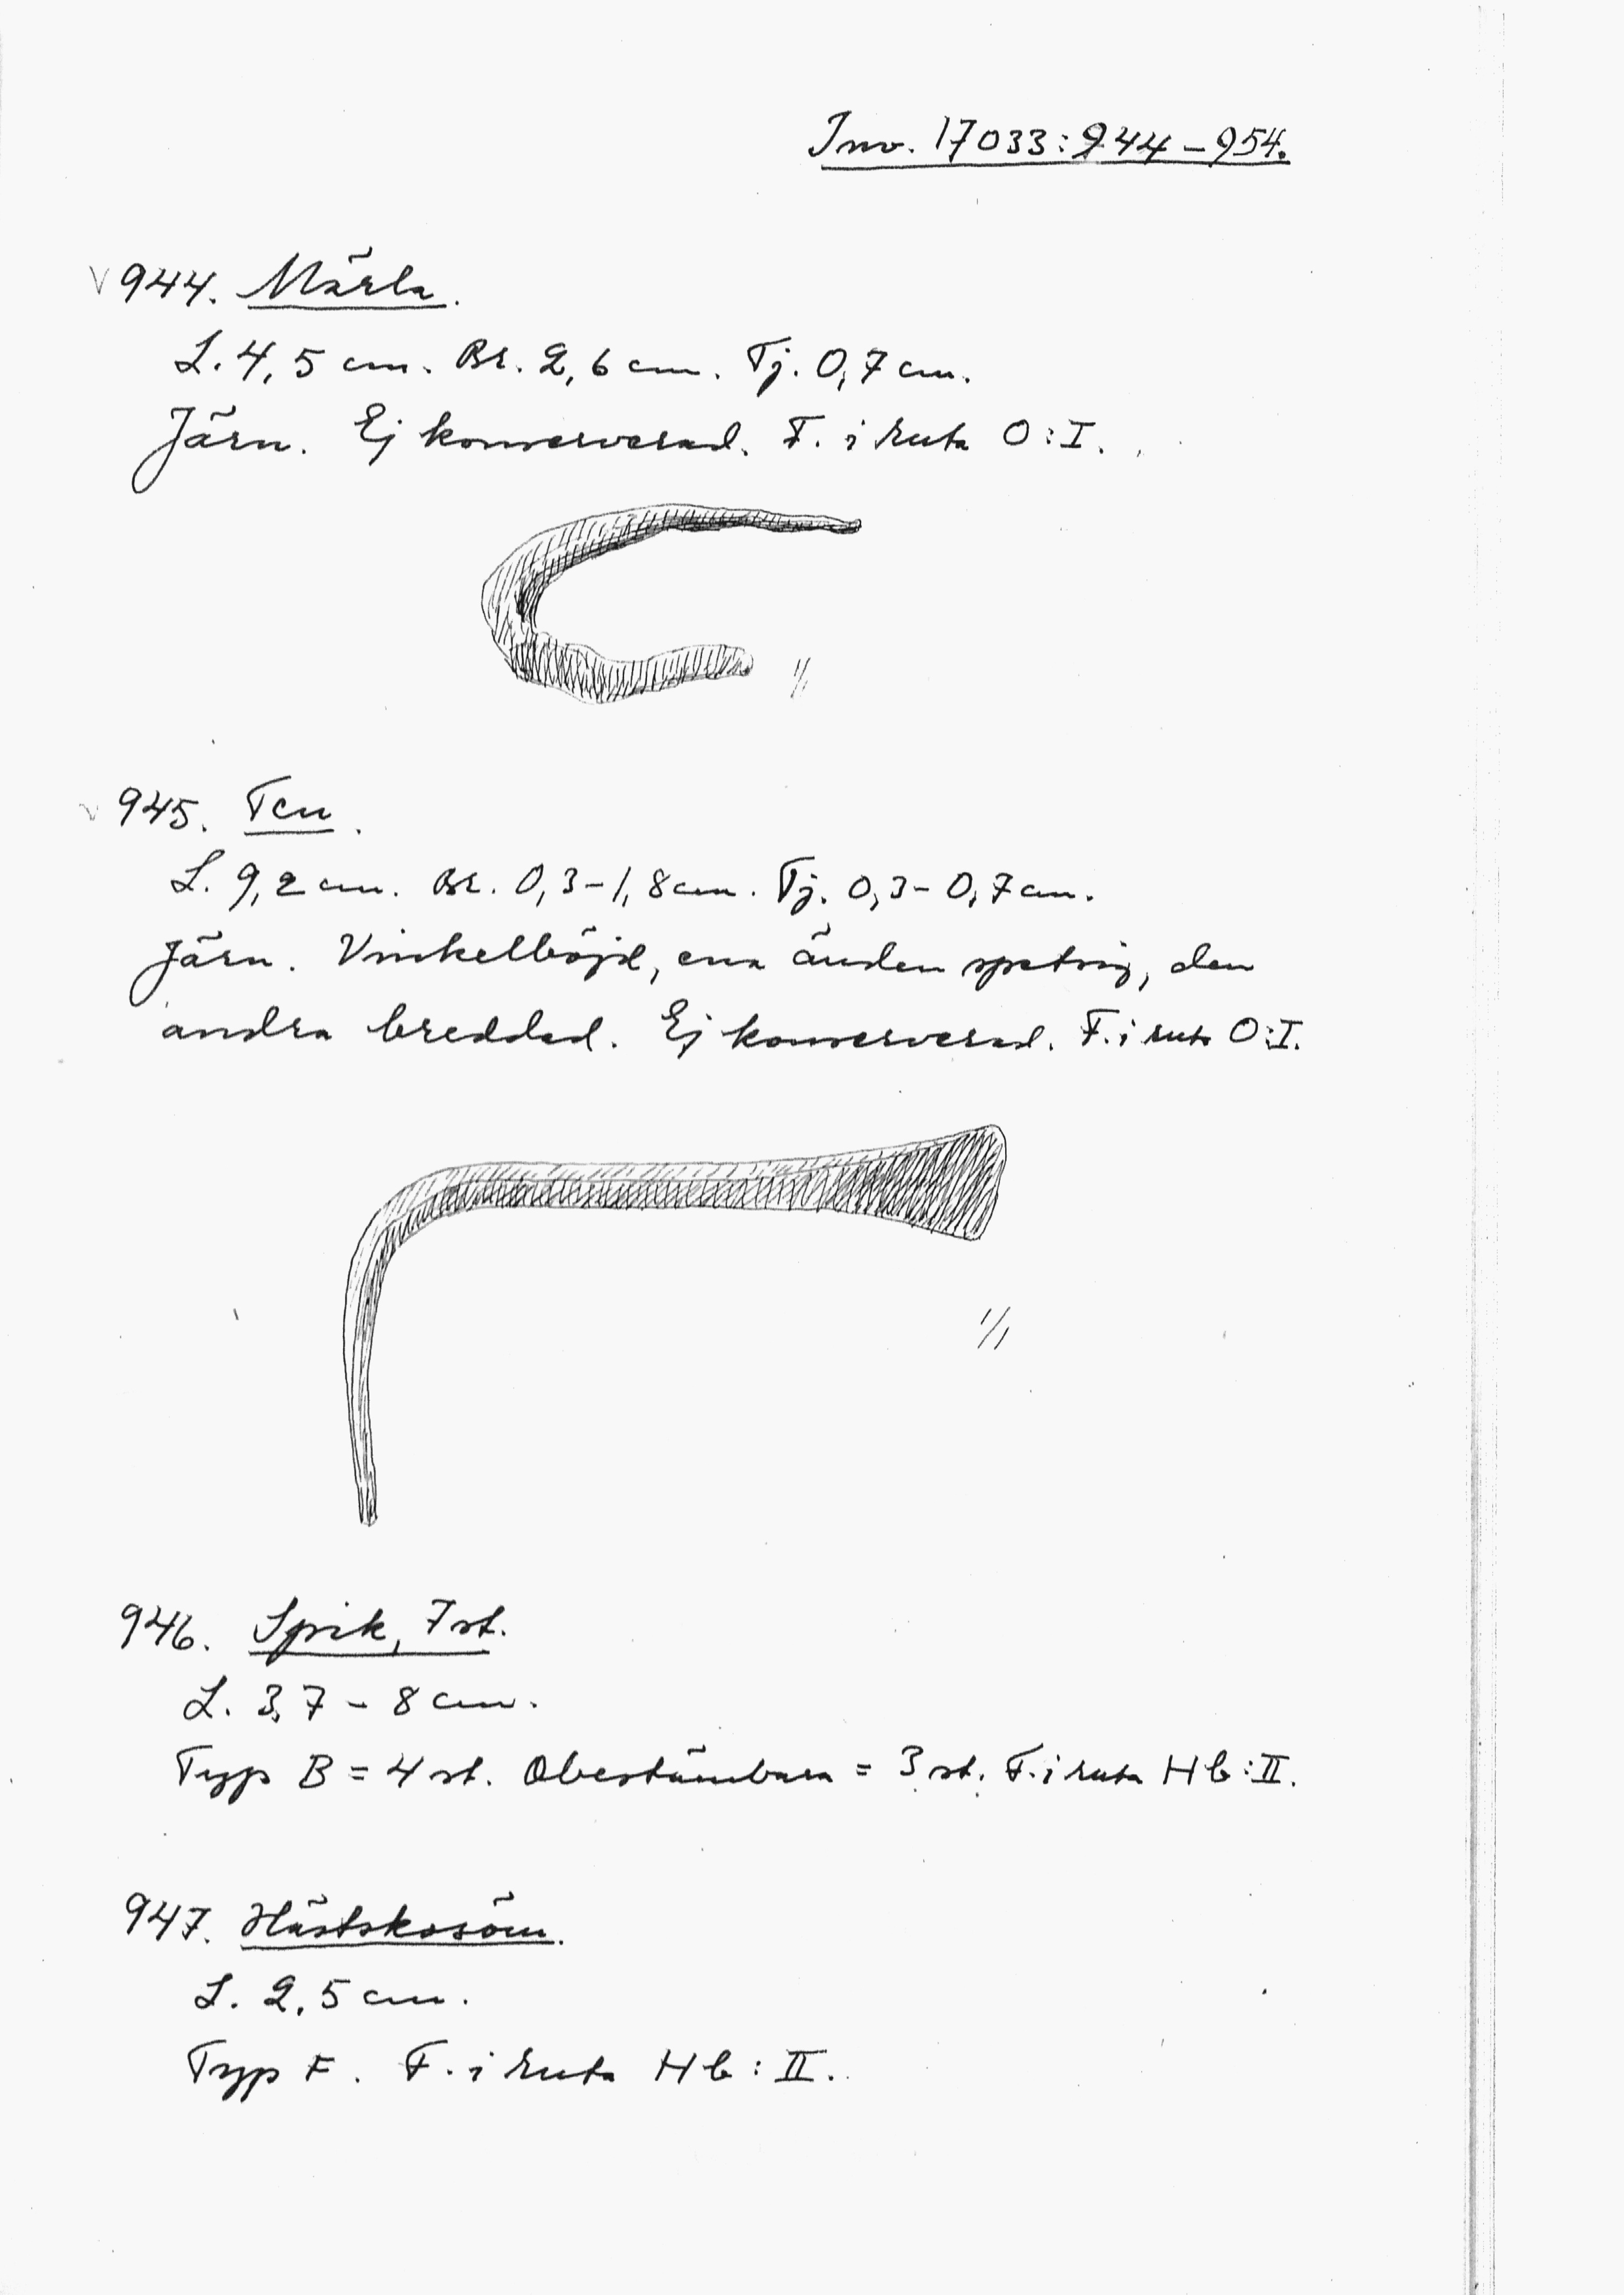 Inv. 17033:944-954.
944. Märla.
L. 4,5 cm. Br. 2,6 cm. Tj. 0,7 cm.
Järn. Ej konserverad. F. i ruta O:I.
1/1
945. Ten.
L. 9,2 cm. Br. 0,3-1,8 cm. Tj. 0,3-0,7 cm.
Järn. Vinkelböjd, ena änden spetsig, den
andra breddad. Ej konserverad. F. i ruta O:I.
1/1
946. Spik, 7 st.
L. 3,7 - 8 cm.
Typ B = 4 st. Obestämbara = 3 st. F. i ruta Hb:II.
947. Hästskosöm.
L. 2,5 cm.
Typ F. F. i ruta Hb:II.